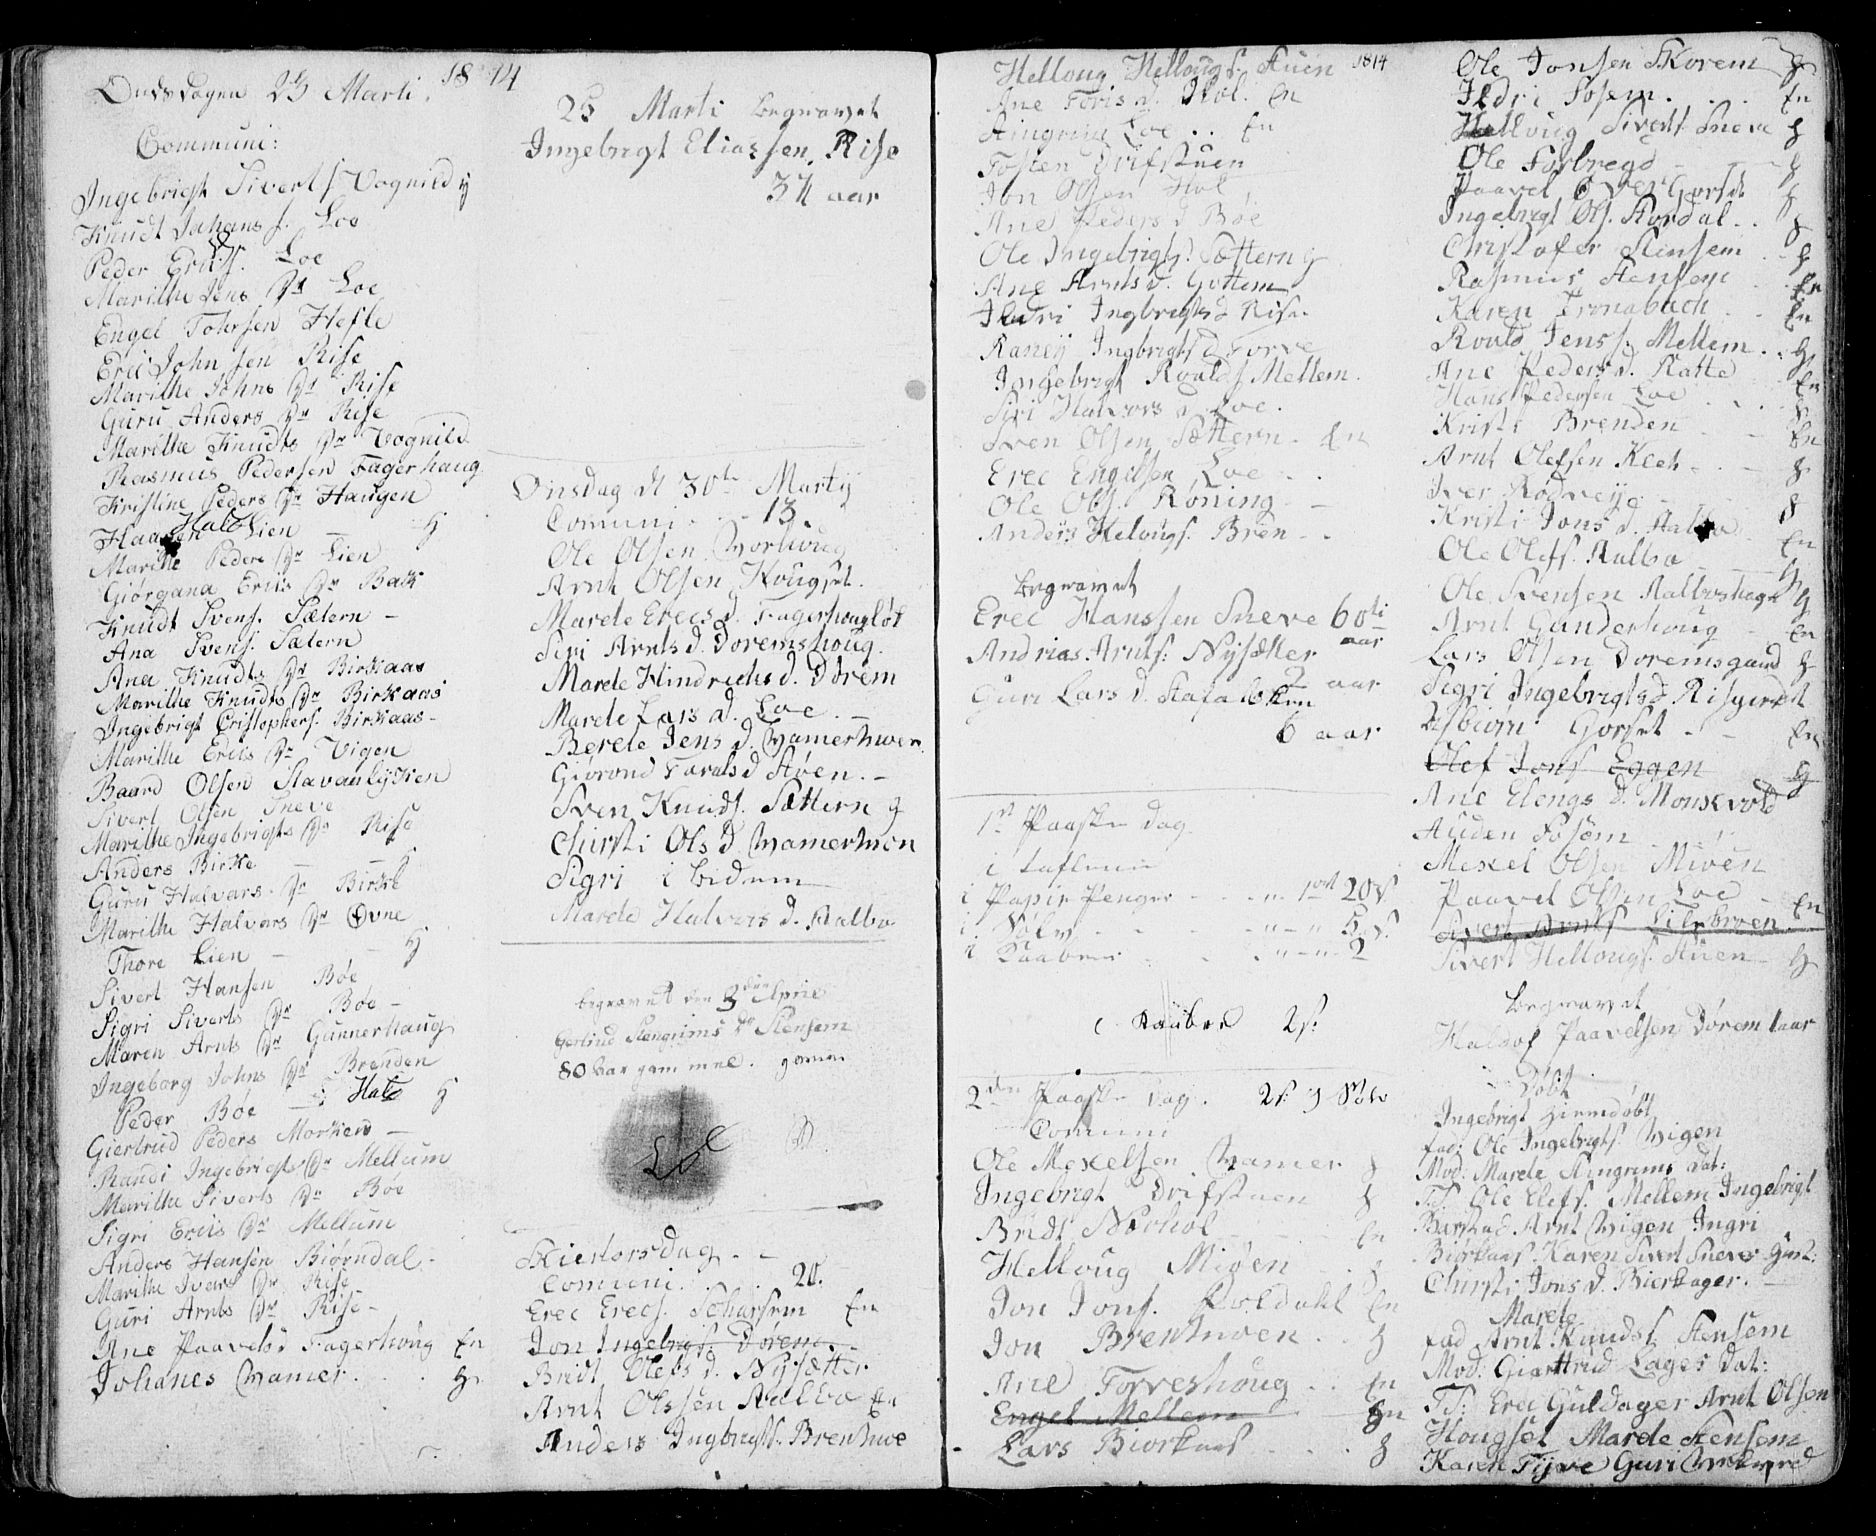 Onsdagen 23 Marti. 1814
Communi:
Ingebrigt Siverts. Vognild
Knudt Johans s. Loe
Peder Erics. Loe
Marithe Jens Dr Loe
Engel Tohrsen Hefle
Eric Johnsen Rise
Marithe Johns Dr Rise
Guru Anders Dr Rise
Marithe Knudts Dr Vognild
Rasmus Pedersen Fagerhaug
Kristine Peders Dr Haugen
Haagen Lien — H
Marithe Peders Dr Lien
Giørgana Erics Dr Bak
Knudt Svens. Sætern –
Ana Svens. Sætern
Ana Knudts Dr Birkaas
Marithe Knudts Dr Birkaas
Ingebrigt Cristophers. Birkaas –
Marithe Erics Dr Vigen
Baard Olsen Stavaulykken
Sivert Olsen Sneve
Marithe Ingebrigts Dr Rise
Anders Birke — – H
Guru Halvars Dr Birke
Marithe Halvars Dr Øvne
Thore Lien – – H
Sivert Hansen Bøe
Sigri Siverts Dr Bøe –
Maren Arnts Dr Gunnerhaug
Ingeborg Johns Dr Brenden
Peder Bøe — H
Giertrud Peders Morken –
Randi Ingebrigts Dr Mellum
Marithe Siverts Dr Bøe
Sigri Erics Dr Mellum
Anders Hansen Biørndal –
Marithe Ivers Dr Rise
Guri Arnts Dr Rise –
Ane Paavels d Fagerhoug En
Johanes Wamer . . . H
25 Marti begravet
Ingebrigt Eliassen Rise
34 aar
Onsdag d 30te Marty
Comuni . . 13.
Ole Olsen
Arnt Olsen Hougset.
Marete Erecs d. Fagerhougløk
Siri Arnts d. Doremshoug.
Marete Hindrichs d. Dorem
Marete Lars d. Loe . –
Berete Jens d.
Giørond d Støen. –
Sven Knuds. Sættern g
Chirsti Ols d.
Sigri ibidem
Marete Halvors d. Aalbo
begravet den 3die Aprie
Gertrud Stengrims Dr Stensem
80 aar gammel.
Loe
Skiertorsdag . –
Comuni . . . 20.
Erec Erecs. En
Jon Ingebrigts. Dørem
Brit Olefs d. Nysætter
Arnt Olssen Aalbo En
Anders Ingbrigts.
Helloug Hellougs. Stuen 1814
Ane d. Hol. En
Stingrim Loe . . En
Tosten Drifstuen
Jon Olsen Hol
Ane Peders d Bøe
Ole Ingebrigts. Sættern g
Ane Arnts d. Gottem
Ildri Ingbrigts d Rise.
Raney Ingbrigts d Torve
Ingebrigt Roalds Mellem.
Siri Halvors d Loe.
Sven Olsen Sættern. En
Erec Engelsen Loe . .
Ole Ols. Røning –
Anders Helougs. Bren . .
begravet
Erec Hanssen Sneve 60ti
aar
Andrias Arnts. Nysætter
2 aar
Guri Lars d.
6 aar
1ste Paaske dag
i taflene
i Papir Penger . . . 1rd 20s
i Sølv . . . 5s.
i Kaaber . . . 2
i Kaaber 2s:
2den Paaske dag. 2s: i Sølv
Comuni
Ole Mexelsen Wamer H
Ingebrigt Drifstuen H
Bridt En
Helloug Miøen . . H
Jon Jons. En
Jon . . H
Ane Torveshoug . . En
Engel Mellem En
Lars Biørkaas . . . H
Ole Jonsen Skorem H
Ildri Sosem. . . . En
Helloug Siverts. Sneve H
Ole Forbregd – – H
Paavel Over Gorset H
Ingebrigt Ols. Stordal . . H
Christofer Stensem . . H
Rasmus Stensem . . En
Karen Tronabach . . En
Roald Jens s. Mellem . . H
Ane Peders d. Ratte En
Hans Pedersen Loe . . H
Kristi Brenden – En
Arnt Olefsen Kleev – . – H
Iver Rødveye – H
Kristi Jons d. Aalbo En
Ole Olefs. Aalbo – H
Ole Svensen Aalboshagen H
Arnt Gunderhoug – En
Lars Olsen Doremsgaard H
Sigri Ingebrigts d Risgierdet
Esbiørn Gorset . – En
Olef Jons Eggen H
Ane Elengs d. Monsevold
Auden Sosem
Mexel Olsen Miøen
Paavel Olsen Loe – En
Sivert Arnts Lilebroen
Sivert Hellougs. Stuen – H
begravet
Haldof Paavelsen Dørem 1 aar
Døbt
Ingebrigt hiemdøbt
fad: Ole Ingebrigts Vigen
Mod: Marete Stingrims dat:
Fd: Ole Elefs. Mellem Ingebrigt
Barstad Arnt Vigen Ingri
Biørkaas. Karen Sivert Sneve Gust:
Chirsti Jons d. Bierkager. –
Marete
fad Arnt Knuds. Stensem
Mod: Giærttrud Lages dat:
Fd: Erec Guldager Arnt Olsen
Hougset Marete Stensem
Karen Tyve Guri